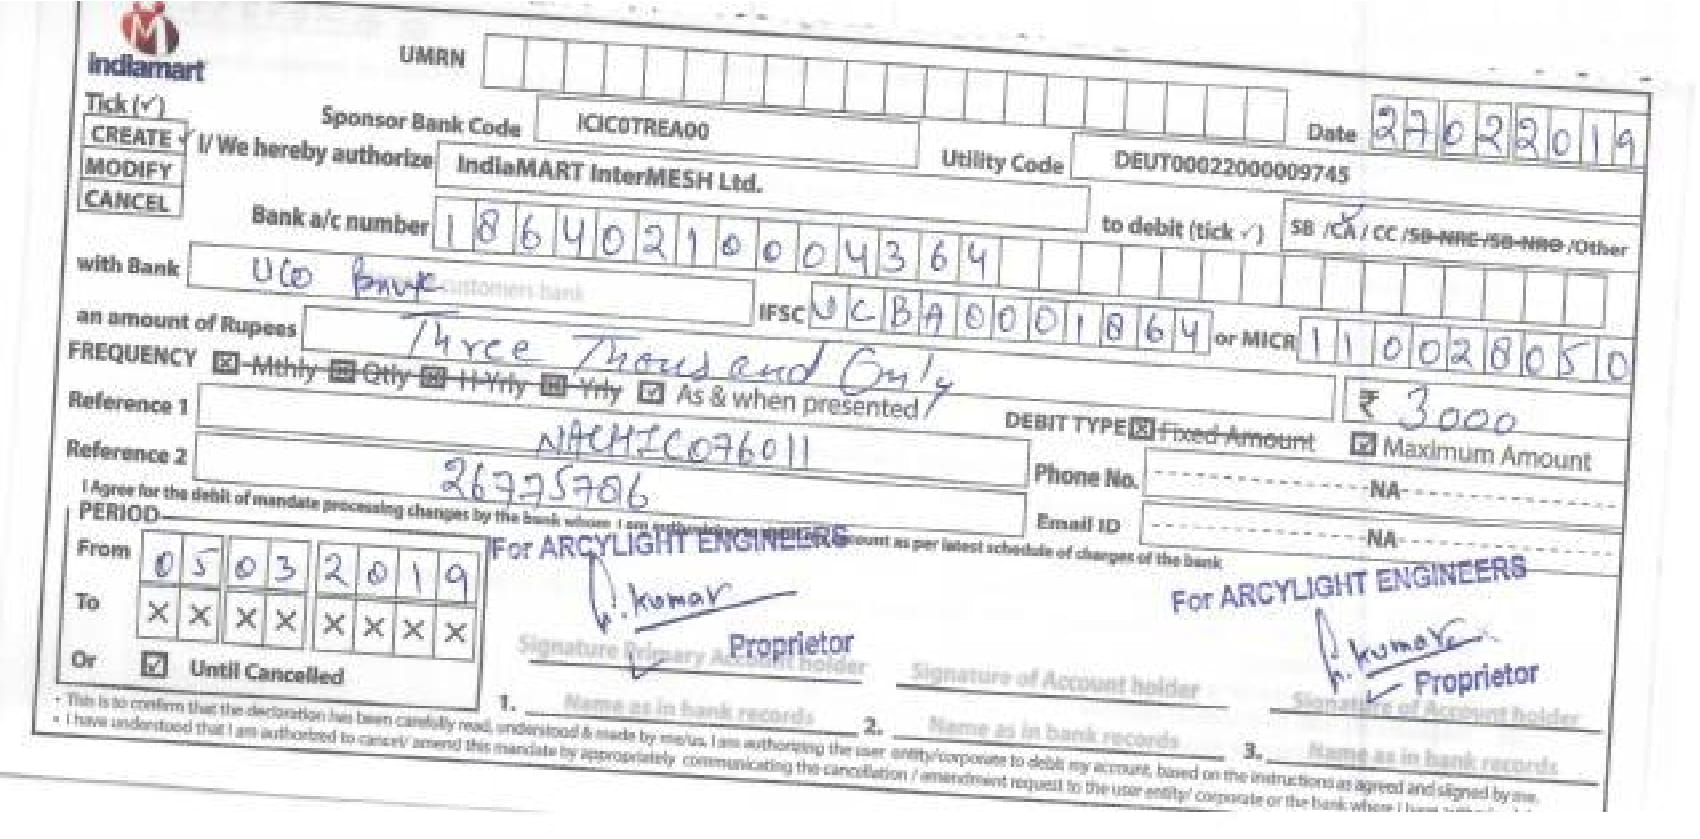 indiamart
UMRN
Tick (✓)
CREATE ✓
MODIFY
CANCEL
Sponsor Bank Code ICIC0TREA00
Date 27022019
I/ We hereby authorize IndiaMART InterMESH Ltd.
Utility Code DEUT00022000009745
Bank a/c number 18640210004364
to debit (tick ✓) SB /CA / CC /SB-NRE /SB-NRO /Other
with Bank UCO Bank customers bank
IFSC UCBA0001864 or MICR 110028050
an amount of Rupees Three Thousand Only
₹ 3000
FREQUENCY ☒ Mthly ☒ Qtly ☒ H-Yrly ☒ Yrly ☑ As & when presented
DEBIT TYPE ☒ Fixed Amount ☑ Maximum Amount
Reference 1 NACHIC076011
Phone No. NA
Reference 2 26775706
Email ID NA
I Agree for the debit of mandate processing charges by the bank whom I am authorizing account as per latest schedule of charges of the bank
PERIOD
From 05032019
To XXXXXXXX
Or ☑ Until Cancelled
For ARCYLIGHT ENGINEERS
P. Kumar
Proprietor
Signature Primary Account holder
Signature of Account holder
For ARCYLIGHT ENGINEERS
P. Kumar
Proprietor
Signature of Account holder
1. Name as in bank records
2. Name as in bank records
3. Name as in bank records
• This is to confirm that the declaration has been carefully read, understood & made by me/us. I am authorizing the user entity/corporate to debit my account, based on the instructions as agreed and signed by me.
• I have understood that I am authorized to cancel/ amend this mandate by appropriately communicating the cancellation / amendment request to the user entity/ corporate or the bank where I have